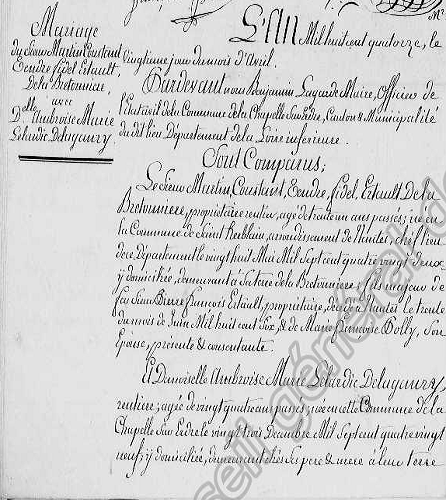 Mariage
du Sieur Martin Constant
Tendre fidel Ertault
De la Bretonniere,
avec
Dlle Ambroise Marie
Lelardic Delaganry.
L'An Mil huit cent quatorze, le
vingtième jour du mois d'Avril.
Pardevant nous Benjamin Maire, Officier de
l'État civil de la Commune de la Chapelle Sur Erdre, Canton & Municipalité
du dit lieu Département de la Loire inferieure.
Sont Comparus;
Le Sieur Martin, Constant, Tendre, fidel, Ertault De la
Bretonniere, propriétaire rentier, agé de trente un ans passés; né en
la Commune de Saint herblain, arrondissement de Nantes, chef lieu
de ce Département le vingt huit Mai Mil Sept cent quatre vingt deux
y domicilié, demeurant à Sa terre de la Bretonniere; fils majeur de
feu Sieur Pierre francois Ertault, propriétaire, décédé à Nantes le trente
du mois de Juin Mil huit cent Six, & de Marie francoise Dolly, Son
Epouse, présente & consentante.
Et Demoiselle Ambroise Marie Lelardic Delaganry,
rentiere; agée de vingt quatre ans passés; née en cette Commune de la
Chapelle Sur Erdre le vingt trois Decembre Mil Sept cent quatre vingt
neuf; y domiciliée, demeurant chés Ses pere & mere à leur terre